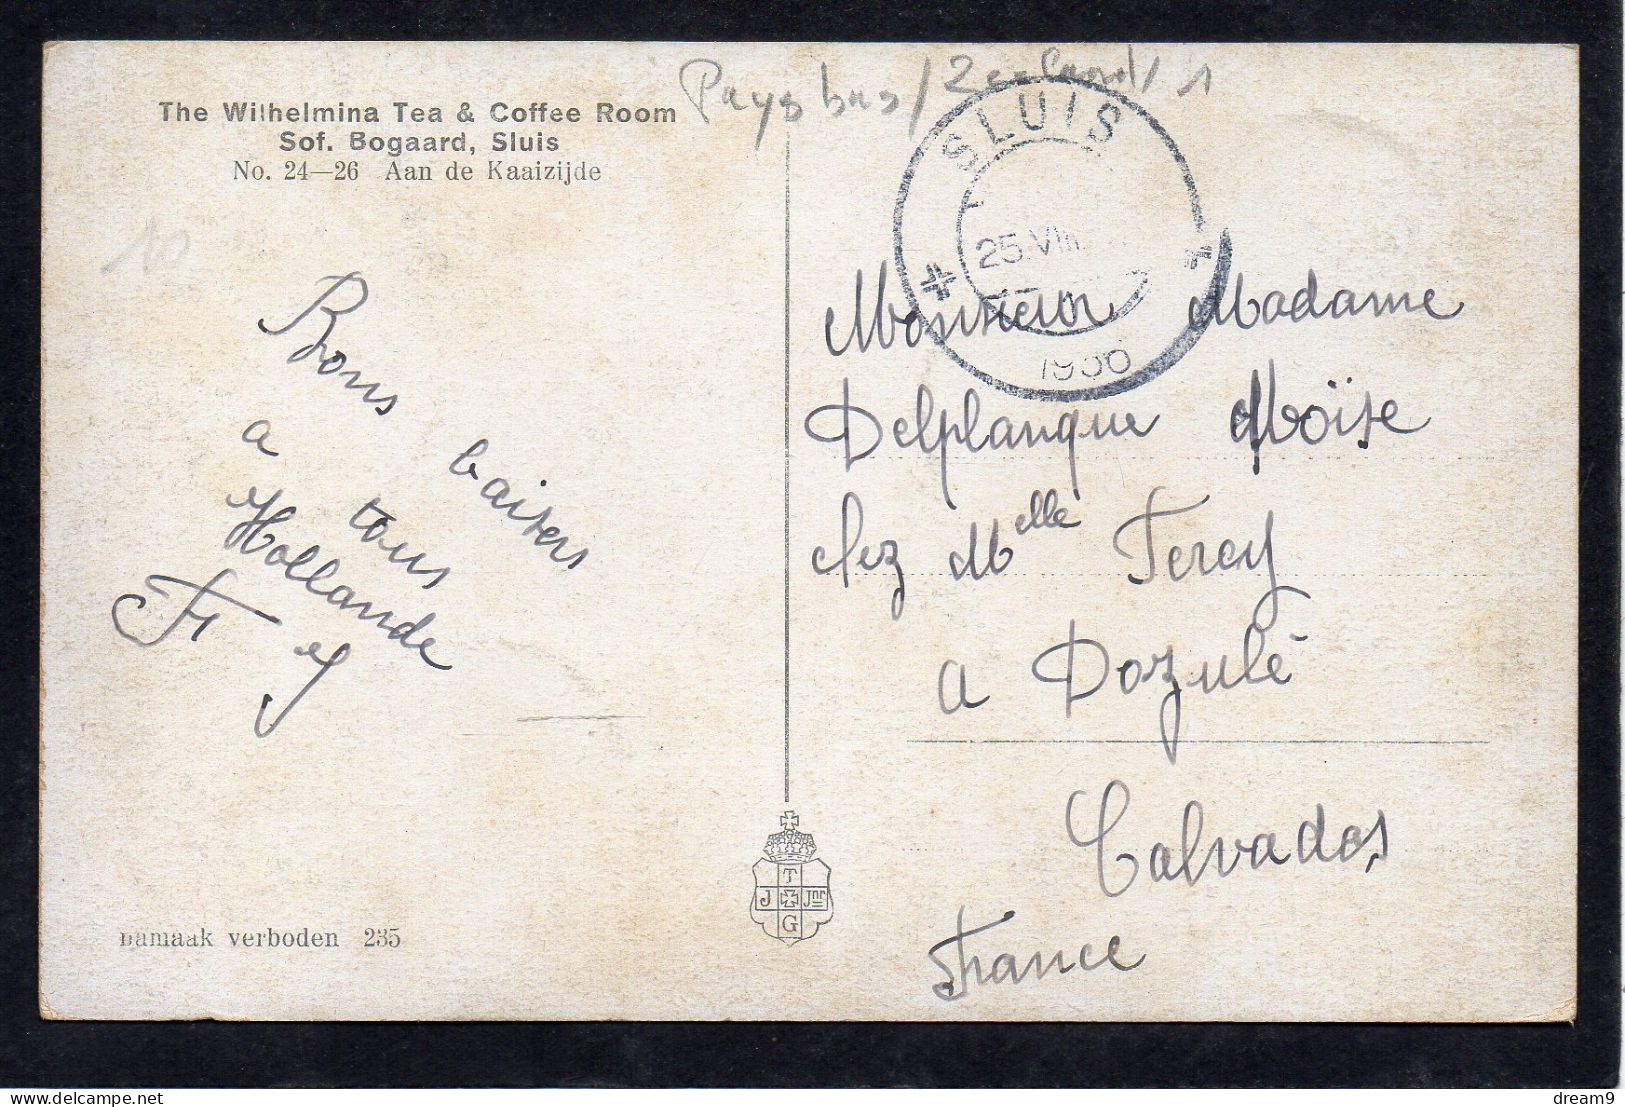 Pays bas / Zeeland / 1
The Wilhelmina Tea & Coffee Room
Sof. Bogaard, Sluis
No. 24—26 Aan de Kaaizijde
10
SLUIS
25 VIII
1936
Bons baisers
a tous
Hollande
Monsieur Madame
Delplanque Moïse
chez Melle Tercy
a Dozulé
Calvados
France
T
J Jnr
G
Namaak verboden 235
delcampe.net
dream9